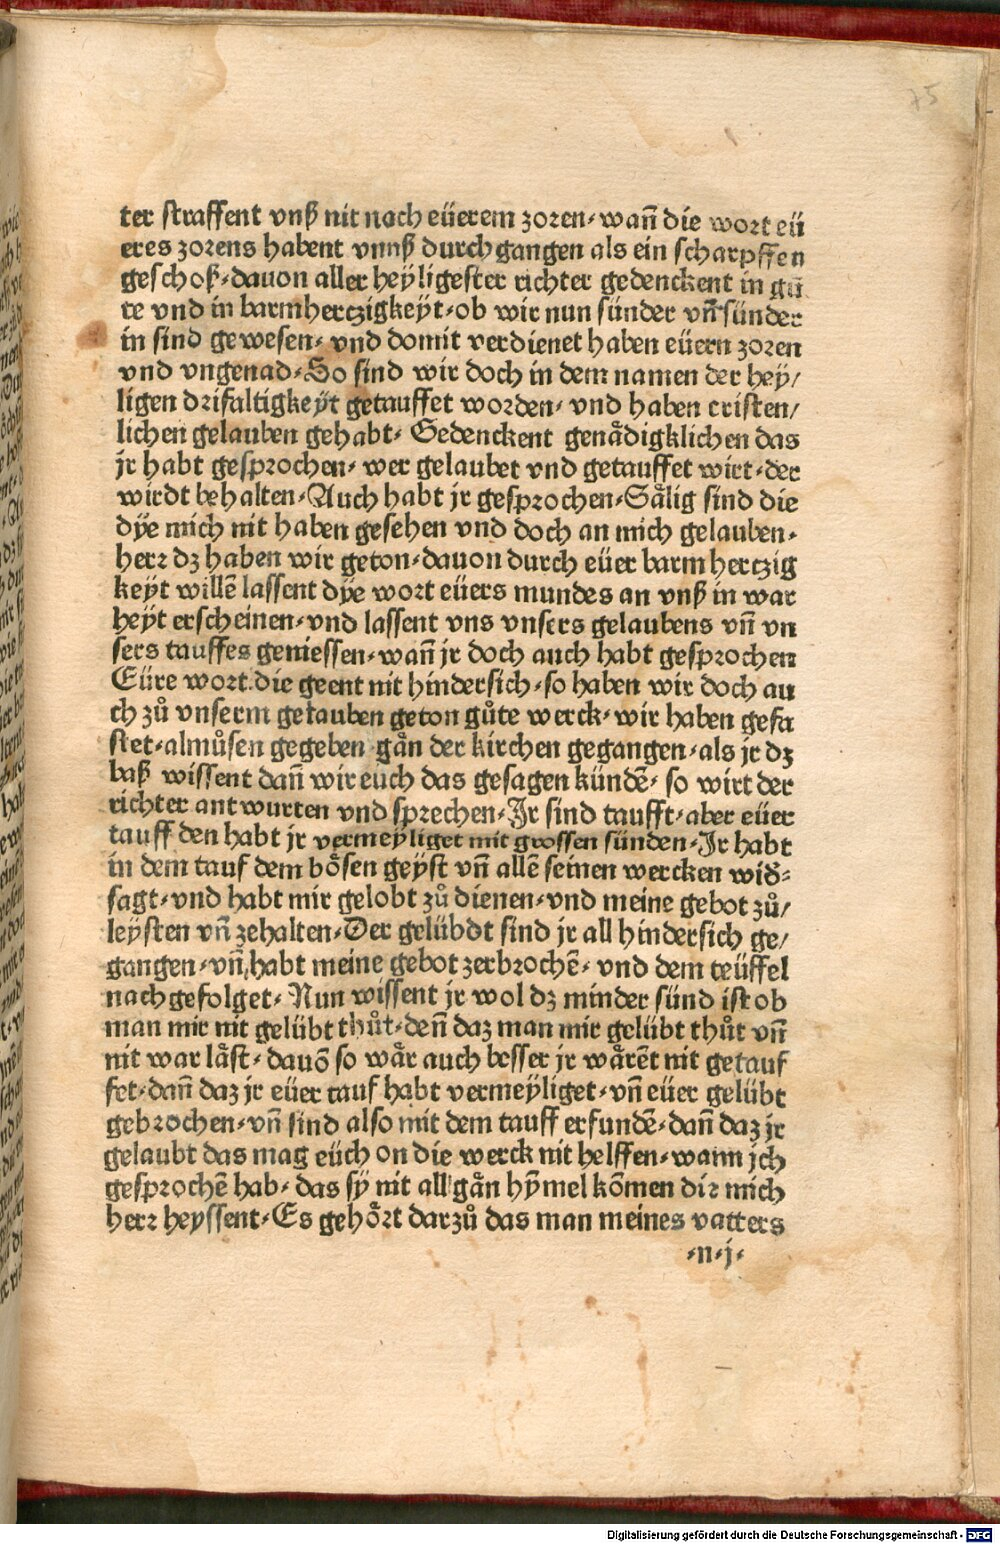 75
ter straffent vnß nit nach eüerem zoren· wañ die wort eü
eres zorens habent vnnß durchgangen als ein scharpffen
geschoß· dauon aller heyligester richter gedenckent in gü
te vnd in barmhertzigkeyt· ob wir nun sünder vñ sünder
in sind gewesen· vnd domit verdienet haben eüern zoren
vnd vngenad· So sind wir doch in dem namen der hey/
ligen drifaltigkeyt getauffet worden· vnd haben cristen/
lichen gelauben gehabt· Gedenckent genådigklichen das
jr habt gesprochen· wer gelaubet vnd getauffet wirt· der
wirdt behalten· Auch habt jr gesprochen· Sålig sind die
dÿe mich nit haben gesehen vnd doch an mich gelauben·
herr dz haben wir geton· dauon durch eüer barmhertzig
keyt willē lassent dÿe wort eüers mundes an vnß in war
heyt erscheinen· vnd lassent vns vnsers gelaubens vñ vn
sers tauffes geniessen· wañ jr doch auch habt gesprochen
Eüre wort die geent nit hindersich· so haben wir doch au
ch zů vnserm gelauben geton gůte werck· wir haben gefa
stet· almůsen gegeben gån der kirchen gegangen· als jr dz
baß wissent dañ wir euch das gesagen kündē· so wirt der
richter antwurten vnd sprechen· Jr sind taufft· aber eüer
tauff den habt jr vermeyliget mit grossen sünden· Jr habt
in dem tauf dem bösen geyst vñ allē seinen wercken wid̃=
sagt· vnd habt mir gelobt zů dienen· vnd meine gebot zů/
leysten vñ zehalten· Der gelübdt sind jr all hindersich ge/
gangen· vñ habt meine gebot zerbrochē· vnd dem teüffel
nachgefolget· Nun wissent jr wol dz minder sünd ist ob
man mir nit gelübt thůt· deñ daz man mir gelübt thůt vñ
nit war låst· dauō so wår auch besser jr wårēt nit getauf
fet· dañ daz jr eüer tauf habt vermeyliget· vñ eüer gelübt
gebrochen· vñ sind also mit dem tauff erfundē· dañ daz jr
gelaubt das mag eüch on die werck nit helffen· wann jch
gesprochē hab· das sÿ nit all gån hÿmel kōmen die mich
herr heyssent· Es gehört darzů das man meines vatters
·n·j·
Digitalisierung gefördert durch die Deutsche Forschungsgemeinschaft - DFG